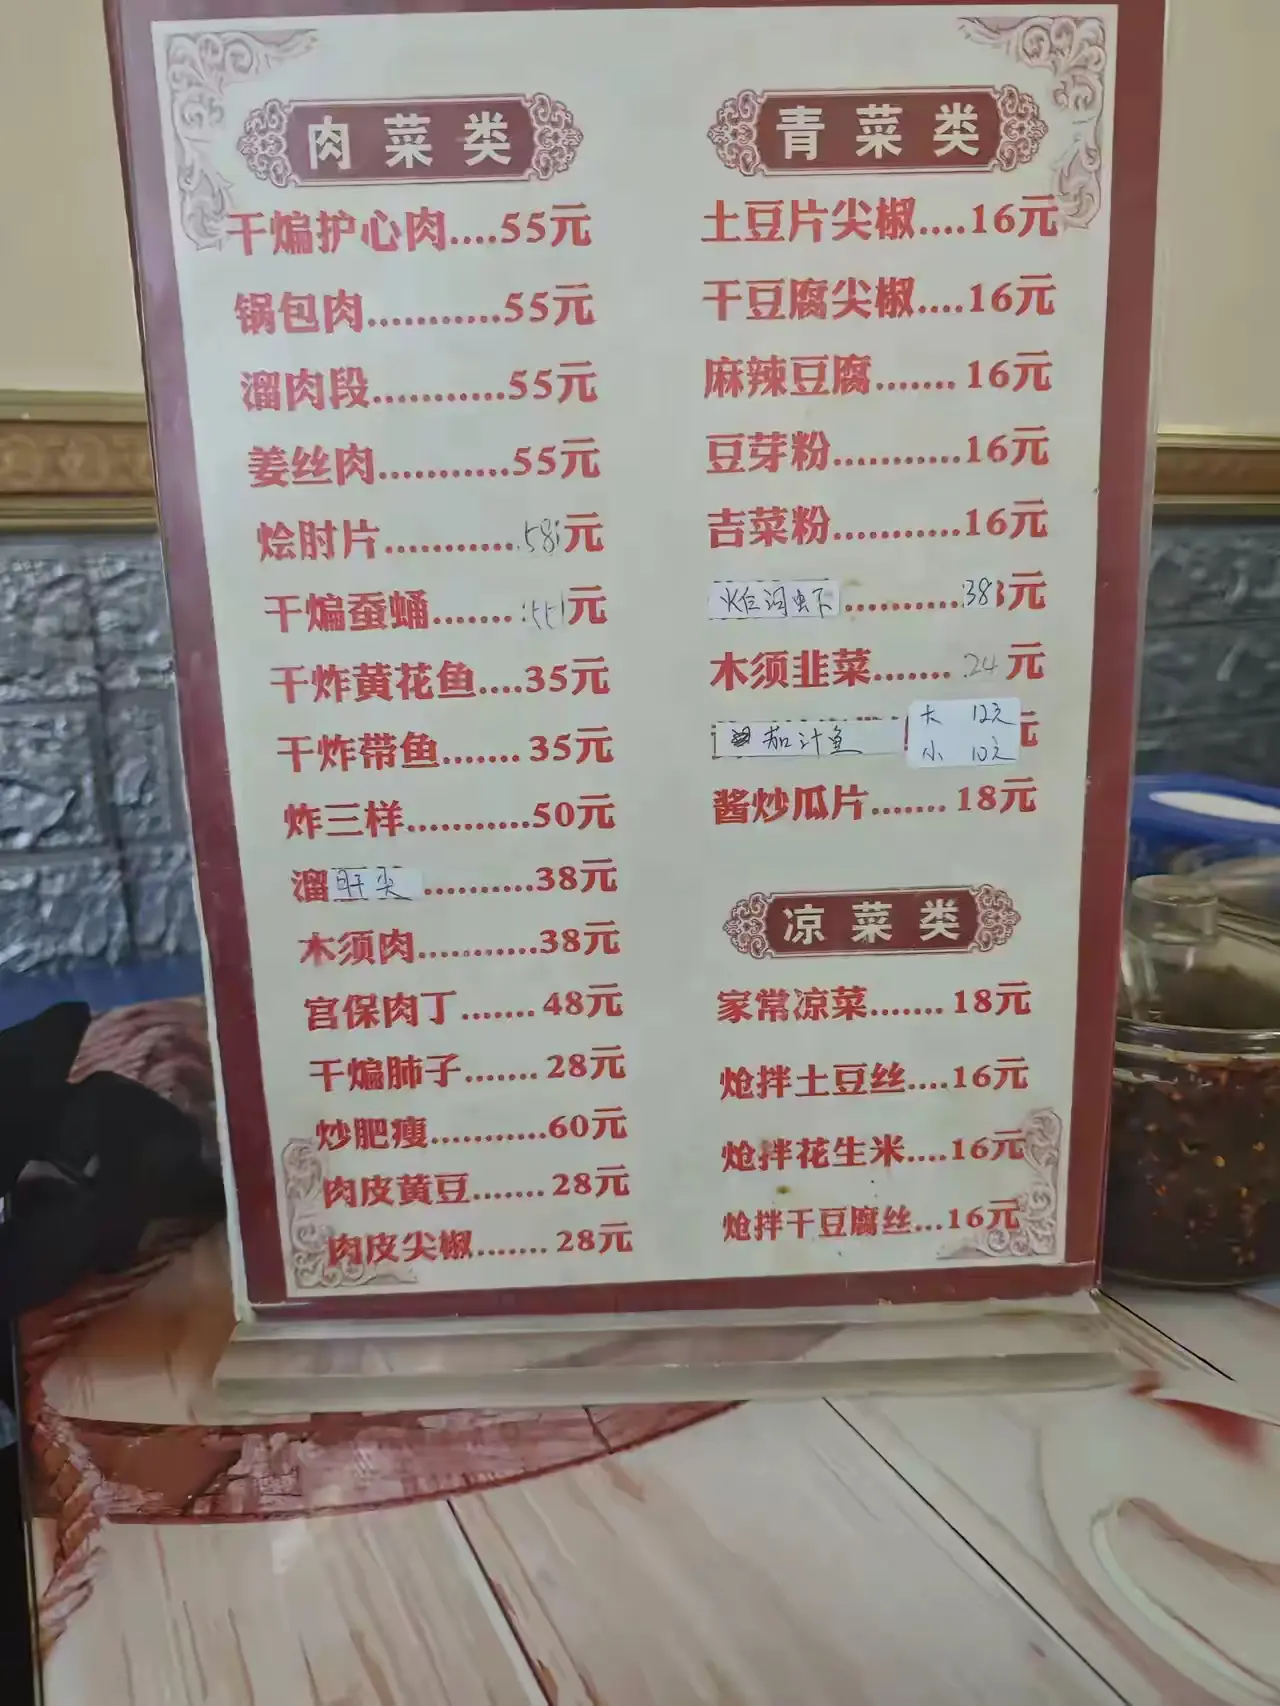 肉菜类
干煸护心肉....55元
锅包肉...........55元
溜肉段...........55元
姜丝肉...........55元
烩肘片...........58元
干煸蚕蛹.......55元
干炸黄花鱼....35元
干炸带鱼.......35元
炸三样...........50元
溜肝尖..........38元
木须肉...........38元
宫保肉丁.......48元
干煸肺子.......28元
炒肥瘦...........60元
肉皮黄豆.......28元
肉皮尖椒.......28元
青菜类
土豆片尖椒....16元
干豆腐尖椒....16元
麻辣豆腐.......16元
豆芽粉...........16元
吉菜粉...........16元
炸河虾..........38元
木须韭菜.......24元
茄汁鱼
大 12元
小 10元
元
酱炒瓜片.......18元
凉菜类
家常凉菜.......18元
炝拌土豆丝....16元
炝拌花生米....16元
炝拌干豆腐丝...16元